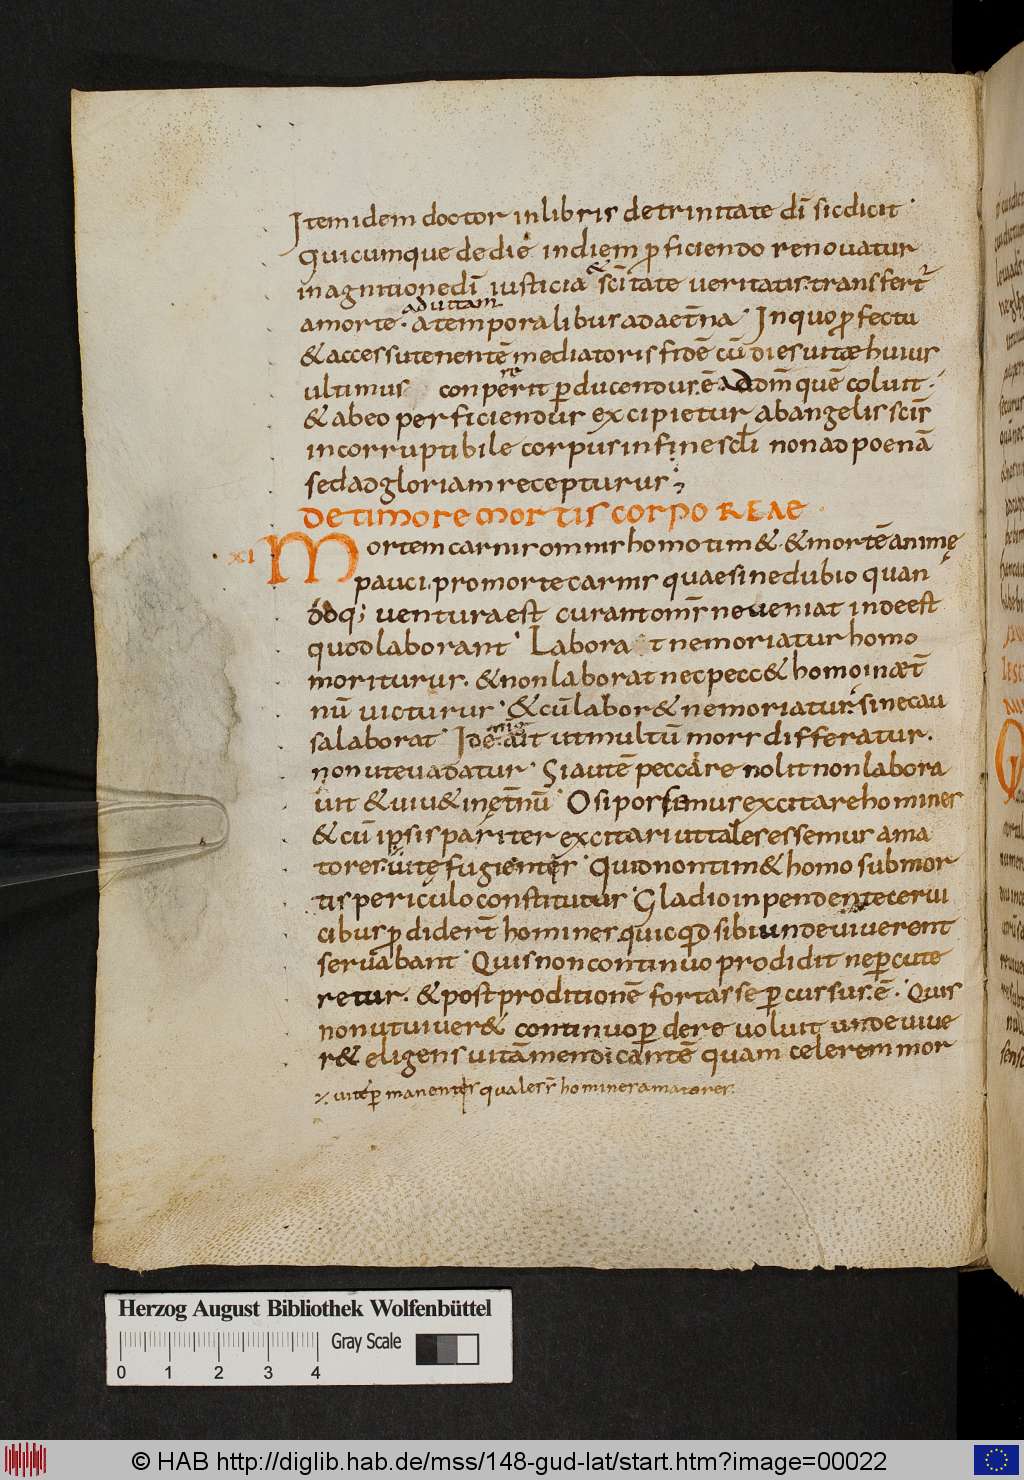 Item idem doctor in libris de trinitate dī sic dicit·
Quicumque de die in diem ꝓficiendo renouatur
in agnitione dī iusticia & scītate ueritatis· transfert᷑
ad uitam
a morte· a temporalibus ad aet̄na· In quo ꝓfectu
& accessu tenentē mediatoris fidē cū dies uitae huius
ultimus conperit ꝑducendus· ē· ad dn̄m quē coluit·
& ab eo perficiendus excipietur ab angelis scīs
incorruptibile corpus in fine sc̄li non ad poenā
sed ad gloriam recepturus;
De timore mortis corporeae
XI Mortem carnis omnis homo tim&· & mortē animę
pauci· pro morte carnis quae sine dubio quan
doq; uentura est curant om̄s ne ueniat inde est
quod laborant· Labora t ne moriatur homo
moriturus· & non laborat ne pecc& homo in aet̄
nū uicturus· & cū labor& ne moriatur· sine cau
sa laborat· Id ē· ait ut multū mors differatur·
non ut euadatur· Si autē peccare nolit non labora
uit & uiu& in ęt̄nū· O si possemus excitare homines
& cū ipsis pariter excitari ut tales essemus ama
tores· uitę fugientis· Quid non tim& homo sub mor
tis periculo constitutus· Gladio inpendente cerui
cibus ꝑdidert̄ homines quicquid sibi unde uiuerent
seruabant· Quis non continuo prodidit ne ꝑcute
retur· & post proditionē fortasse ꝑcussus· ē· Quis
non ut uiuer& continuo ꝑdere uoluit unde uiue
r& eligens uitā mendicantē quam celerem mor
uitę ꝑmanentis quales s̄ homines amatores·
Herzog August Bibliothek Wolfenbüttel
Gray Scale
0 1 2 3 4
© HAB http://diglib.hab.de/mss/148-gud-lat/start.htm?image=00022